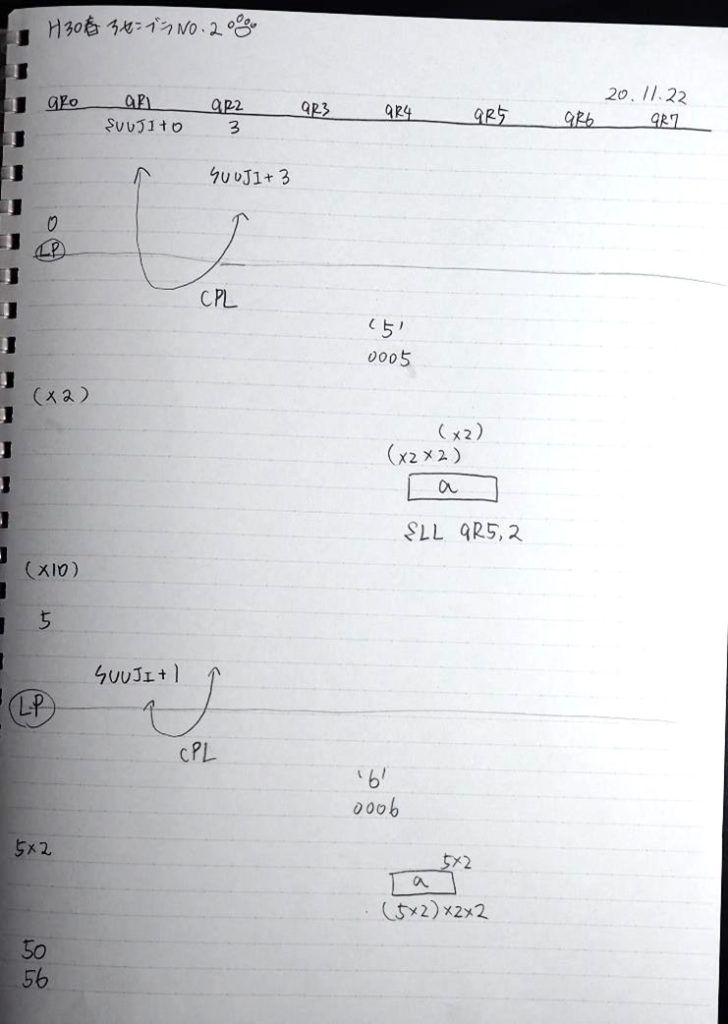 H30春 アセンブラNO.2
20.11.22
GR0 GR1 GR2 GR3 GR4 GR5 GR6 GR7
SUUJI+0 3
SUUJI+3
0
LP
CPL
'5'
0005
(×2)
(×2)
(×2×2)
a
SLL GR5,2
(×10)
5
SUUJI+1
LP
CPL
'6'
0006
5×2
5×2
a
(5×2)×2×2
50
56